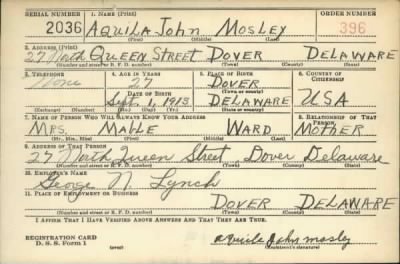 SERIAL NUMBER 1. NAME (Print) ORDER NUMBER
2036 AQUILA JOHN MOSLEY 396
(First) (Middle) (Last)
2. ADDRESS (Print)
27 North QUEEN STREET DOVER DELAWARE
(Number and street or R. F. D. number) (Town) (County) (State)
3. TELEPHONE 4. AGE IN YEARS 5. PLACE OF BIRTH 6. COUNTRY OF CITIZENSHIP
None 27 DOVER
DATE OF BIRTH (Town or county)
Sept. 1, 1913 DELAWARE USA
(Exchange) (Number) (Mo.) (Day) (Yr.) (State or country)
7. NAME OF PERSON WHO WILL ALWAYS KNOW YOUR ADDRESS 8. RELATIONSHIP OF THAT PERSON
MRS. MABLE WARD MOTHER
(Mr., Mrs., Miss) (First) (Middle) (Last)
9. ADDRESS OF THAT PERSON
27 North Queen Street, Dover Delaware
(Number and street or R. F. D. number) (Town) (County) (State)
10. EMPLOYER'S NAME
George N. Lynch
11. PLACE OF EMPLOYMENT OR BUSINESS
DOVER DELAWARE
(Number and street or R. F. D. number) (Town) (County) (State)
I AFFIRM THAT I HAVE VERIFIED ABOVE ANSWERS AND THAT THEY ARE TRUE.
REGISTRATION CARD
D. S. S. Form 1 (over) aquila John mosley
(Registrant's signature)